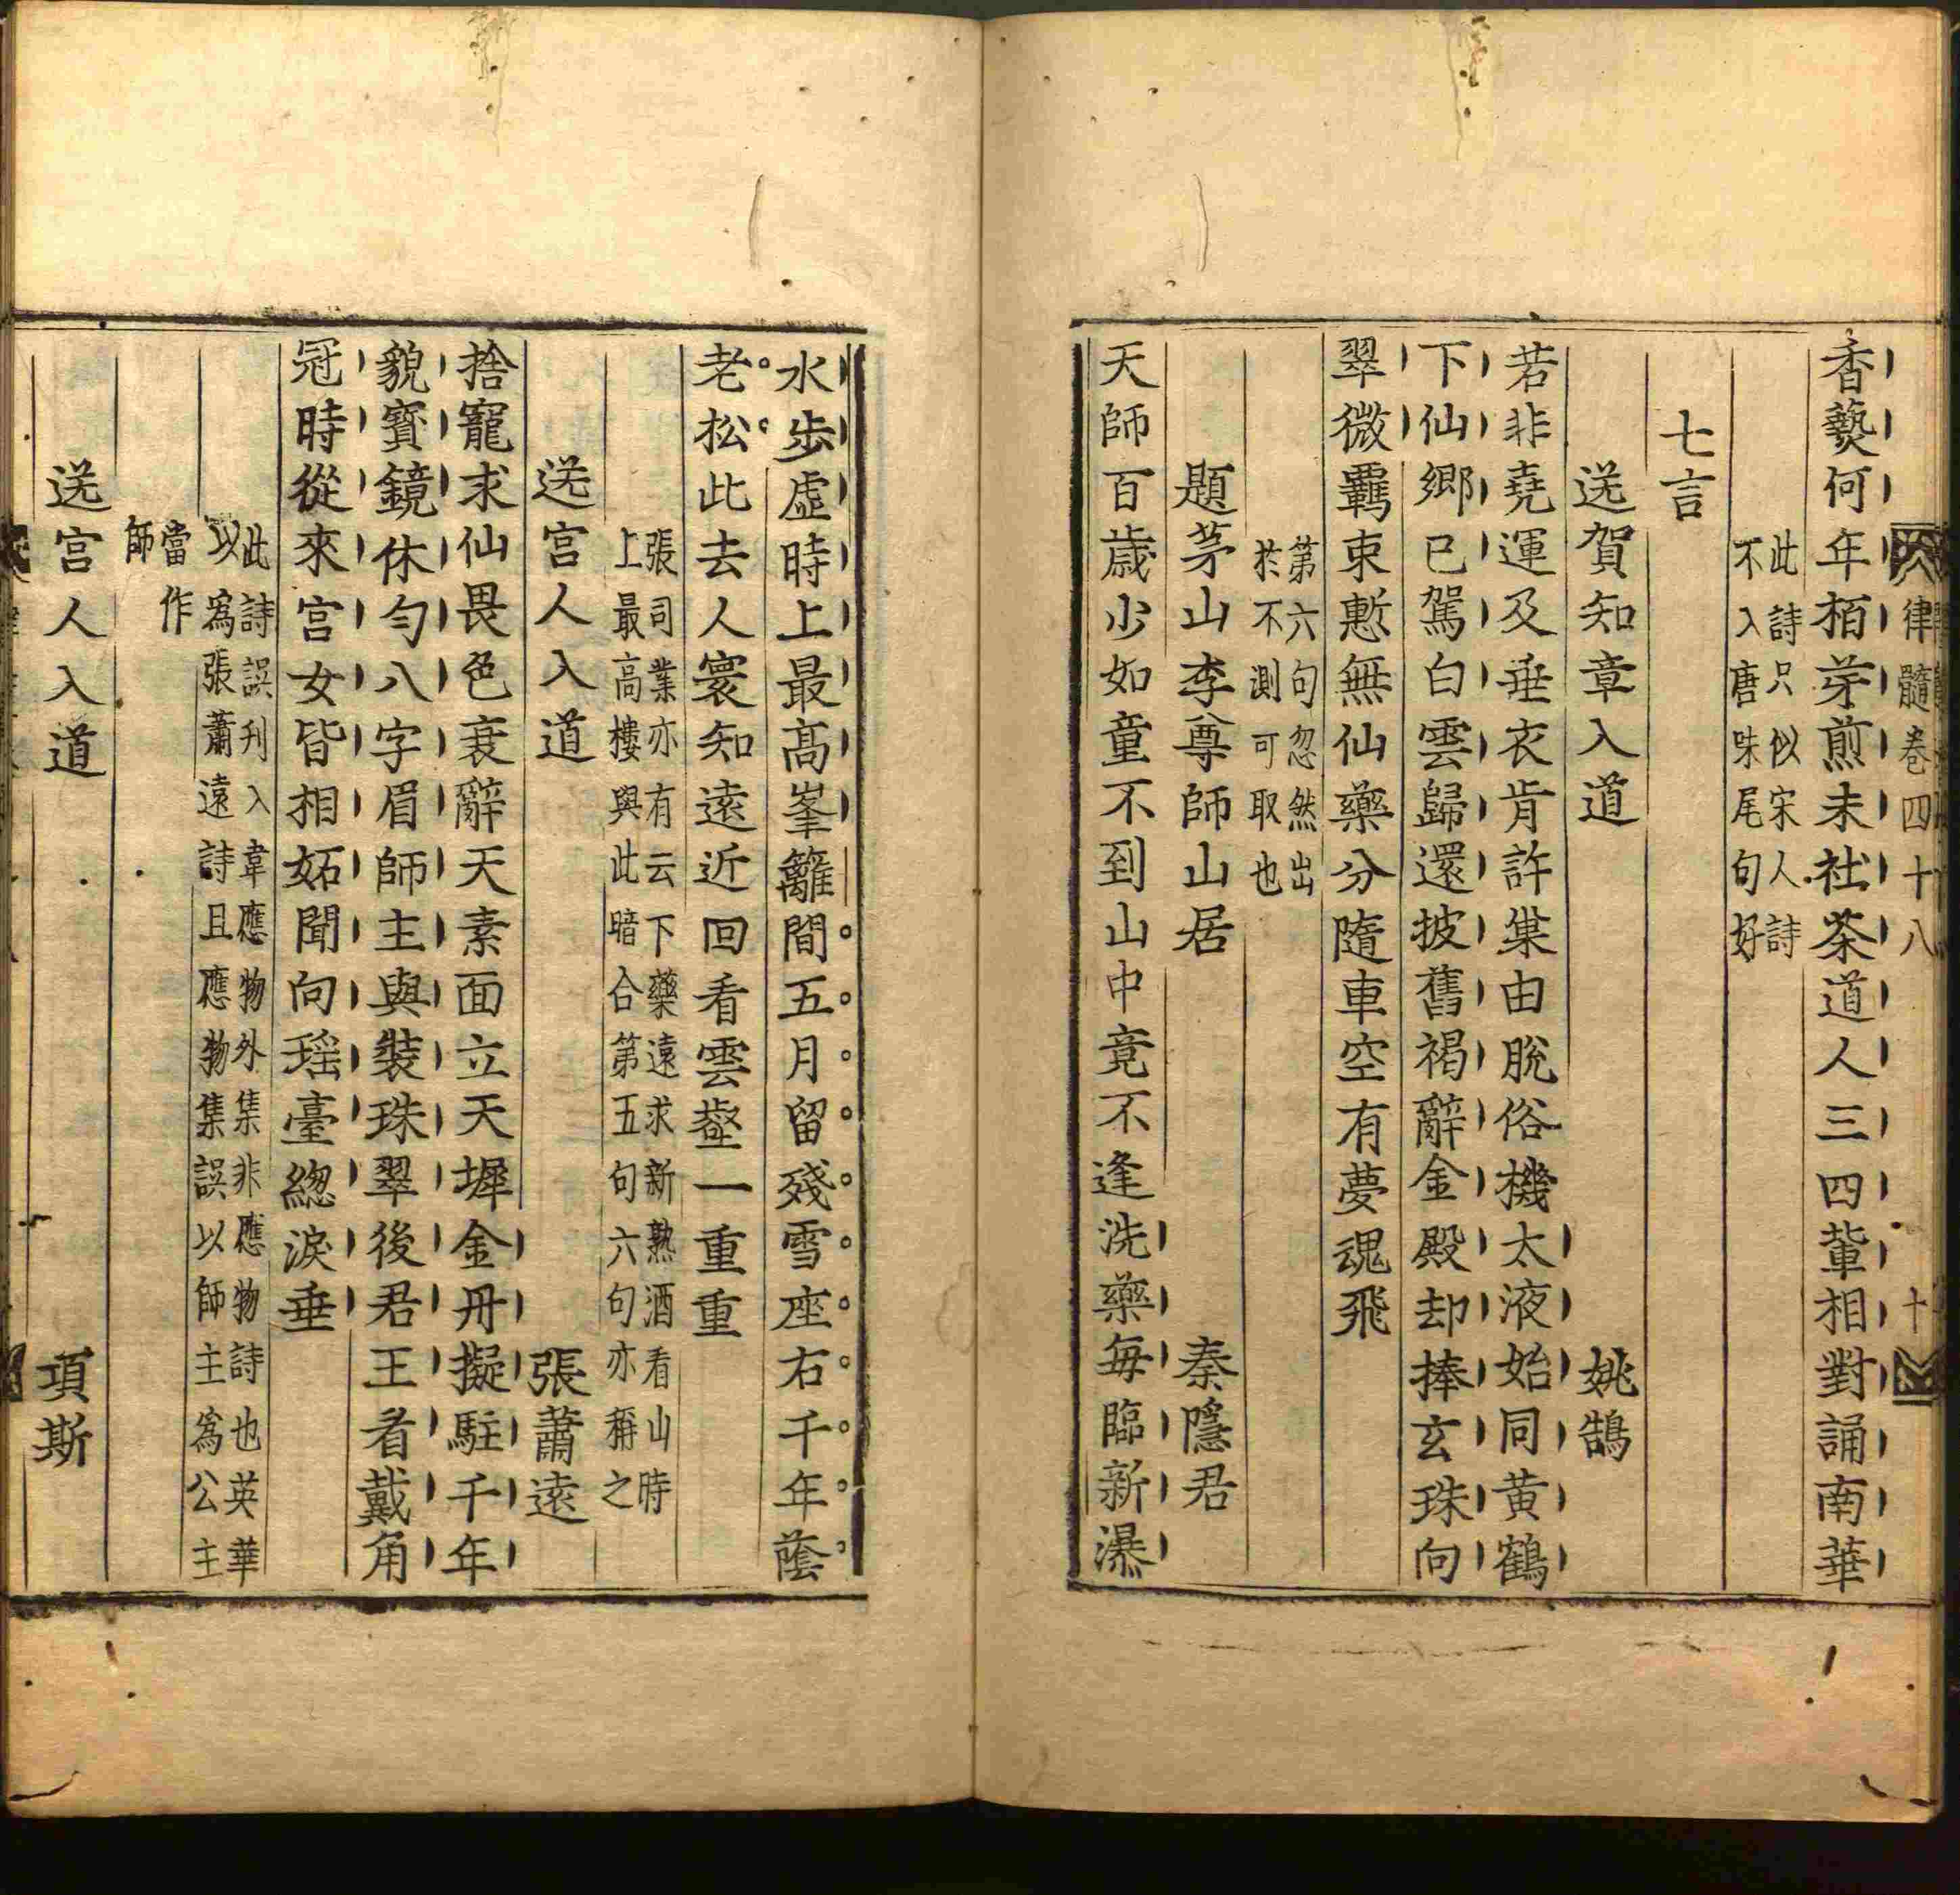 律髓卷四十八 十
香爇何年栢芽煎未社茶道人三四輩相對誦南華
此詩只似宋人詩
不入唐味尾句好
七言
送賀知章入道 姚鵠
若非堯運及垂衣肯許巢由脫俗機太液始同黃鶴
下仙鄉已駕白雲歸還披舊褐辭金殿却捧玄珠向
翠微羈束慙無仙藥分隨車空有夢魂飛
第六句忽然出
於不測可取也
題茅山李尊師山居 秦隱君
天師百歲少如童不到山中竟不逢洗藥每臨新瀑
水步虛時上最高峯籬間五月留殘雪座右千年蔭
老松此去人寰知遠近回看雲壑一重重
張司業亦有云下藥遠求新熟酒看山時
上最高樓與此暗合第五句六句亦稱之
送宮人入道 張蕭遠
捨寵求仙畏色衰辭天素面立天墀金丹擬駐千年
貌寳鏡休勻八字眉師主與裝珠翠後君王看戴角
冠時從來宮女皆相妬聞向瑶臺緫淚垂
此詩誤刋入韋應物外集非應物詩也英華
以爲張蕭遠詩且應物集誤以師主爲公主
當作
師
送宮人入道 項斯